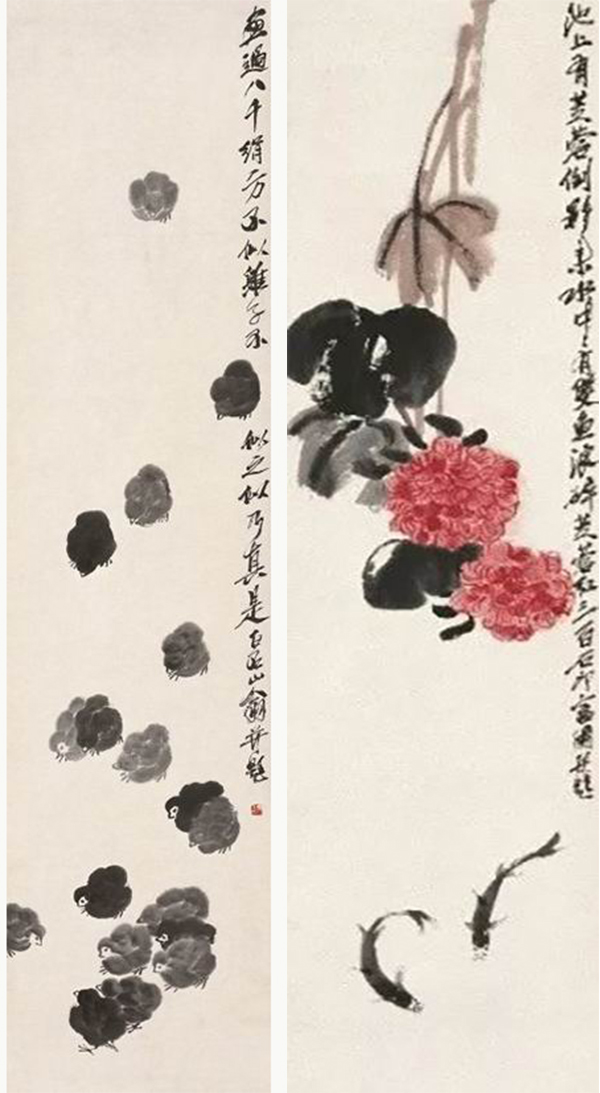 畫過八千絹方不似雛子不似之似乃真是白石山翁并題
池上有芙蓉倒影來水中〻有雙魚浪碎芙蓉紅三百石印富翁并題